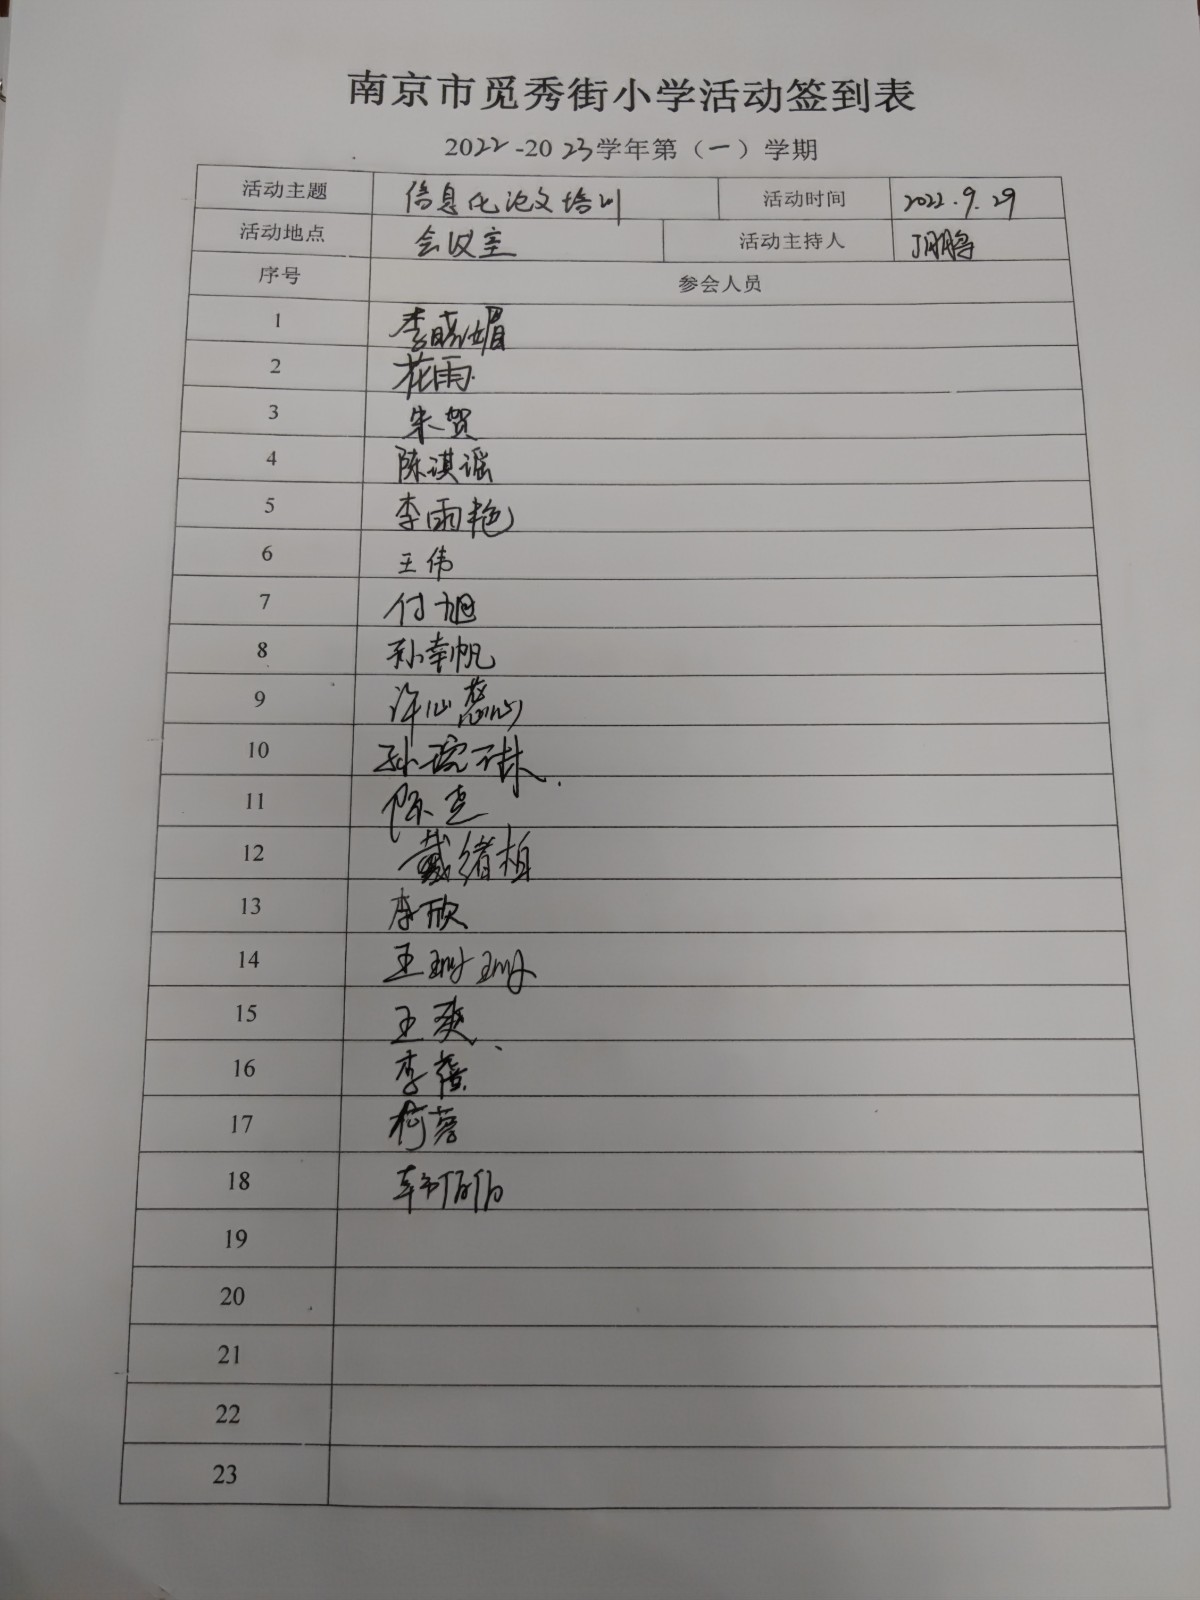 南京市觅秀街小学活动签到表
2022-2023学年第（一）学期
活动主题 信息化论文培训 活动时间 2022.9.29
活动地点 会议室 活动主持人 丁鹏
序号 参会人员
1 李晓媚
2 花雨
3 朱贺
4 陈淇谣
5 李雨艳
6 王伟
7 付旭
8 孙幸帆
9 许心慈
10 孙琬琳
11 陈
12 戴绪植
13 李欣
14 王珊珊
15 王爽
16 李
17 柯蓉
18 韩
19
20
21
22
23